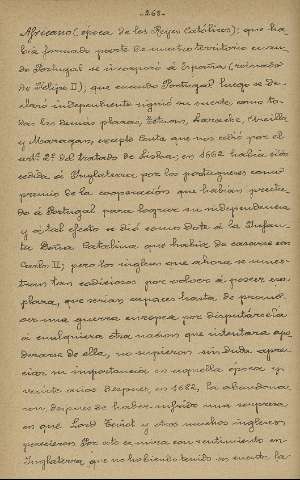 -268-
Africano (época de los Reyes Católicos); que ha-
bía formado parte de nuestro territorio cuan-
do Portugal se incorporó a España (reinado
de Felipe II), que cuando Portugal luego se de-
claró independiente siguió su suerte, como to-
das las demás plazas, Tetuan, Larache, Arcilla
y Mazagan, excepto Ceuta que nos cedió por el
artº 2º del tratado de Lisboa; en 1662 había sido
cedida á Inglaterra por los portugueses como
premio de la cooperación que habían presta-
do á Portugal para lograr su independencia
y á tal efecto se dió como dote á la Infan-
ta Doña Catalina que había de casarse con
Carlos II; pero los ingleses que ahora se mues-
tran tan codiciosos por volver á poseer esa
plaza, que serían capaces hasta de promo-
ver una guerra europea por disputársela
á cualquiera otra nación que intentara apo-
derarse de ella, no supieron sin duda apre-
ciar su importancia en aquella época y
veinte años despues, en 1682, la abandona-
ron, despues de haber sufrido una sorpresa
en que Lord Teviot y otros muchos ingleses
perecieron. Por otra consentimiento en
Inglaterra, que no habiendo tenido en cuenta la